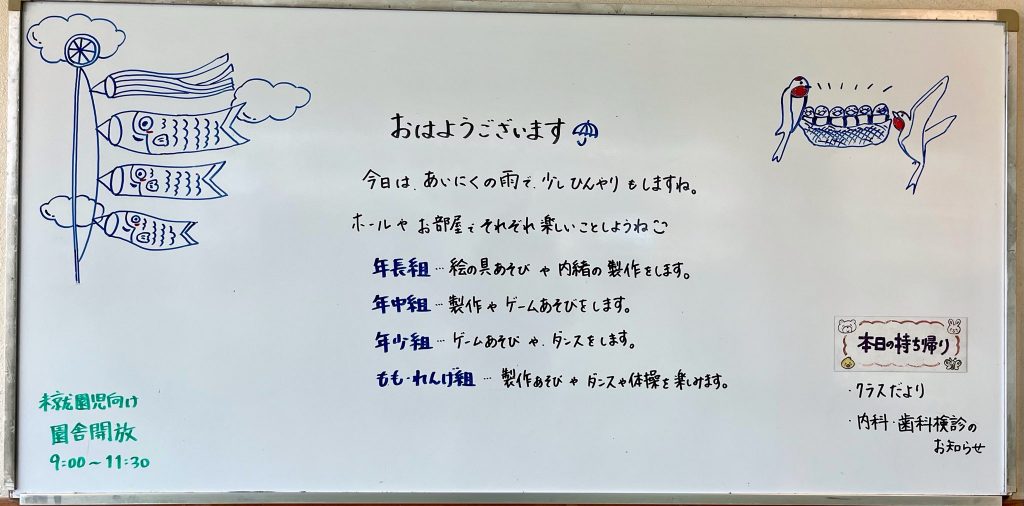 おはようございます
今日は、あいにくの雨で、少しひんやりもしますね。
ホールやお部屋でそれぞれ楽しいことしようね
年長組…絵の具あそびや内緒の製作をします。
年中組…製作やゲームあそびをします。
年少組…ゲームあそびや、ダンスをします。
もも・れんげ組…製作あそびやダンスや体操を楽しみます。
本日の持ち帰り
・クラスだより
・内科・歯科検診の
お知らせ
未就園児向け
園舎開放
9:00～11:30